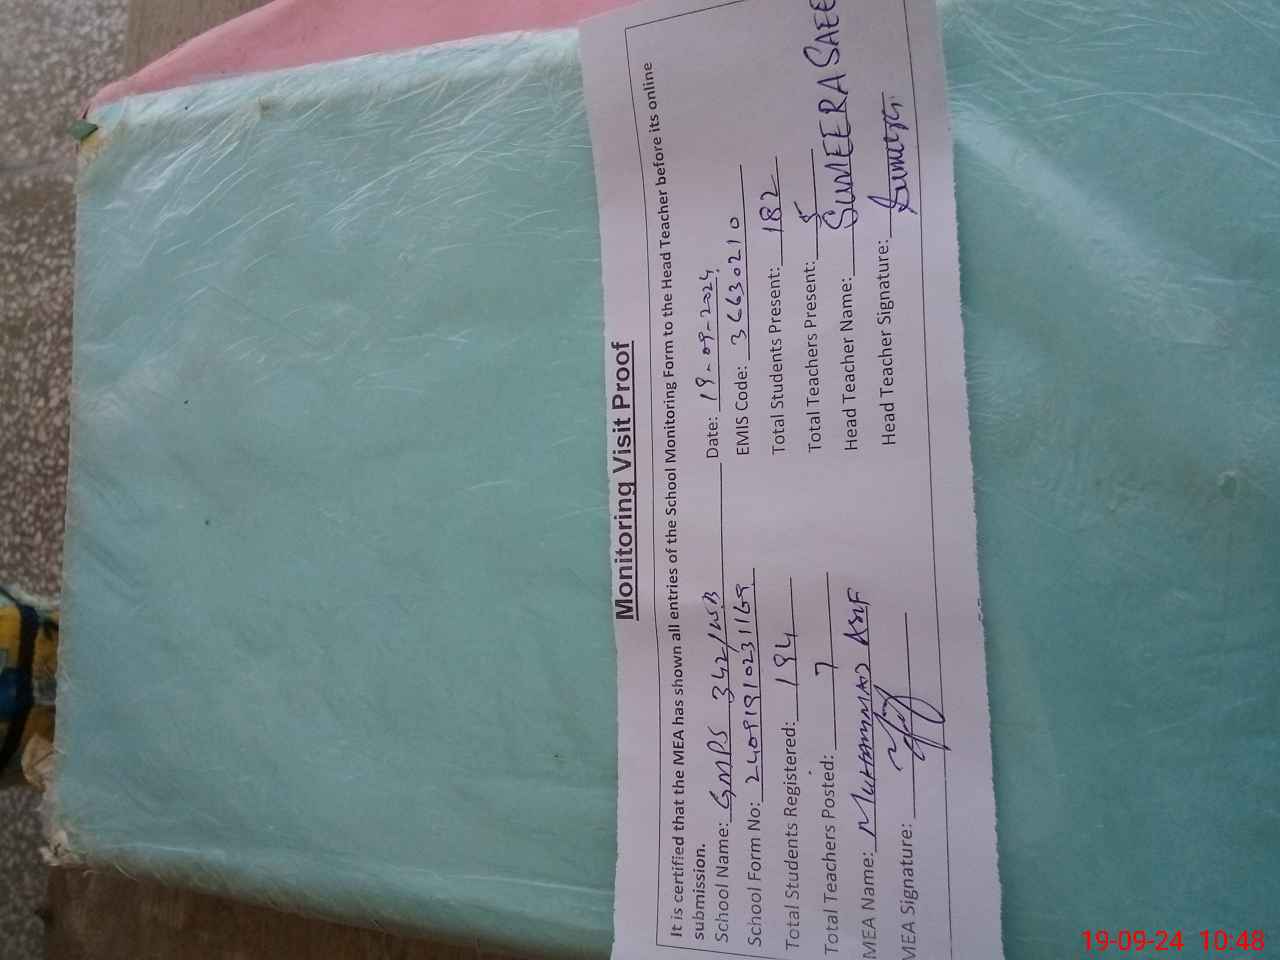 Monitoring Visit Proof
It is certified that the MEA has shown all entries of the School Monitoring Form to the Head Teacher before its online
submission.
School Name: GMPS 342/WB Date: 19-09-2024
School Form No: 24091910231169 EMIS Code: 36630210
Total Students Registered: 194 Total Students Present: 182
Total Teachers Posted: 7 Total Teachers Present: 5
MEA Name: MUHAMMAD ASIF Head Teacher Name: SUMEERA SAEE
MEA Signature: Head Teacher Signature: Sumeera
19-09-24 10:48